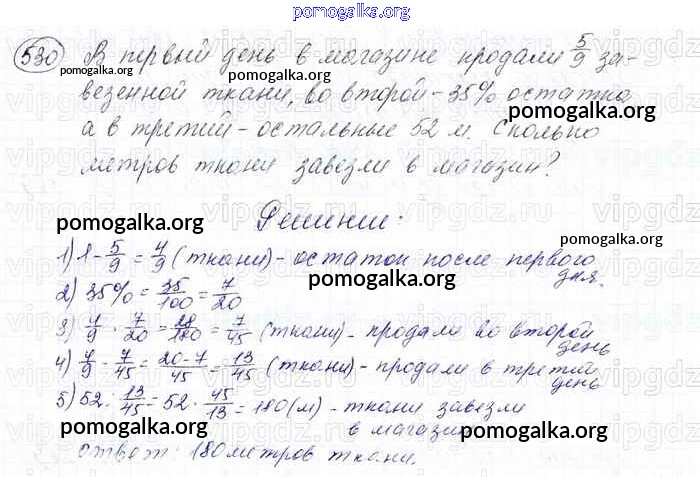 pomogalka.org
530 В первый день в магазине продали 5/9 за-
везенной ткани, во второй - 35% остатка
а в третий - остальные 52 м. Сколько
метров ткани завезли в магазин?
Решение:
1) 1 - 5/9 = 4/9 (ткани) - остаток после первого
дня.
2) 35% = 35/100 = 7/20
3) 4/9 · 7/20 = 28/180 = 7/45 (ткани) - продали во второй
день
4) 4/9 - 7/45 = (20-7)/45 = 13/45 (ткани) - продали в третий
день
5) 52 : 13/45 = 52 · 45/13 = 180 (м) - ткани завезли
в магазин
ответ: 180 метров ткани.
pomogalka.org
pomogalka.org
pomogalka.org
pomogalka.org
pomogalka.org
pomogalka.org
pomogalka.org
pomogalka.org